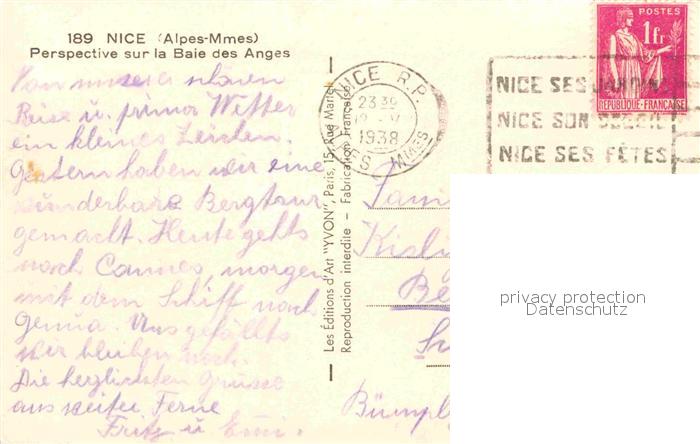 189 NICE (Alpes-Mmes)
Perspective sur la Baie des Anges
Von unserer schönen
Reise u. prima Wetter
ein kleines Zeichen.
Gestern haben wir eine
wunderbare Bergtour
gemacht. Heute gehts
nach Cannes, morgen
mit dem Schiff nach
Genua. Uns gefällts
wir bleiben noch.
Die herzlichsten Grüsse
aus weiter Ferne
Fritz u. Emmi.
Les Éditions d'Art "YVON", Paris, 15, Rue Martel
Reproduction interdite – Fabrication Française
NICE R.P.
23 30
1938
ALPES MMES
NICE SES JARDINS
NICE SON SOLEIL
NICE SES FÊTES
POSTES
1fr
REPUBLIQUE-FRANÇAISE
Fami
Be
Bümpl
privacy protection
Datenschutz